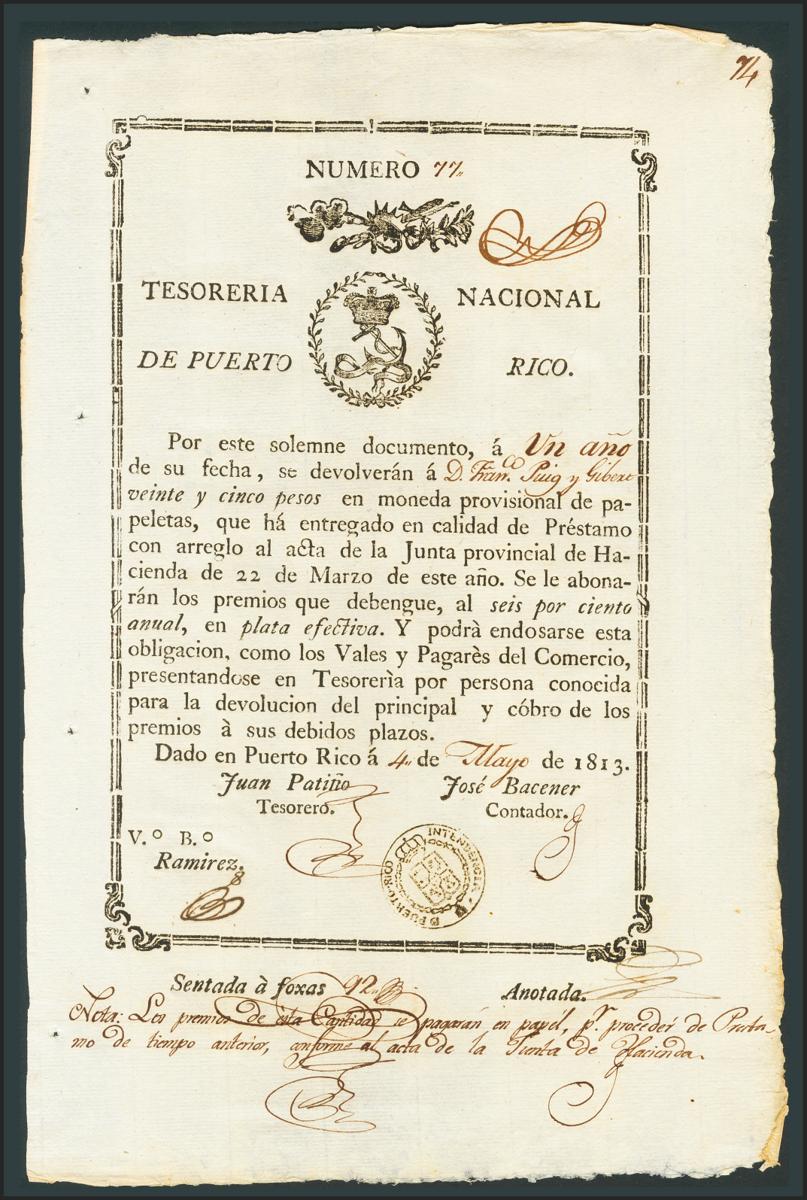 74
NUMERO 77.,
TESORERIA NACIONAL
DE PUERTO RICO.
Por este solemne documento, á Un año
de su fecha, se devolverán á D. Fran.co Puig y Gibert
veinte y cinco pesos en moneda provisional de pa-
peletas, que há entregado en calidad de Préstamo
con arreglo al acta de la Junta provincial de Ha-
cienda de 22 de Marzo de este año. Se le abona-
rán los premios que debengue, al seis por ciento
anual, en plata efectiva. Y podrà endosarse esta
obligacion, como los Vales y Pagarès del Comercio,
presentandose en Tesorerìa por persona conocida
para la devolucion del principal y cóbro de los
premios à sus debidos plazos.
Dado en Puerto Rico á 4., de Mayo de 1813.
Juan Patiño José Bacener
Tesorero. Contador.
V.º B.º
Ramirez.
INTENDENCIA D PUERTO-RICO
Sentada à foxas 92., Anotada.
Nota: Los premios de esta Cantidad se pagarán en papél, p.r procedér de Presta-
mo de tiempo anterior, conforme al acta de la Junta de Hacienda.